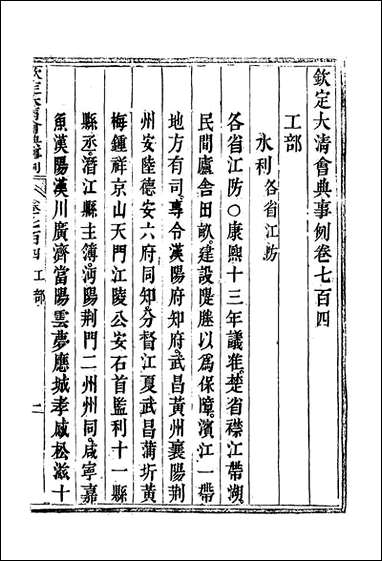 欽定大清會典事例卷七百四
工部
水利各省江防
各省江防○康熙十三年議准楚省襟江帶湖
民間廬舍田畝建設隄塍以爲保障濱江一帶
地方有司專令漢陽府知府武昌黃州襄陽荆
州安陸德安六府同知分督江夏武昌蒲圻黃
梅鍾祥京山天門江陵公安石首監利十一縣
縣丞潛江縣主簿沔陽荆門二州州同咸寧嘉
魚漢陽漢川廣濟當陽雲夢應城孝感松滋十
欽定大清會典事例 卷七百四 工部 一